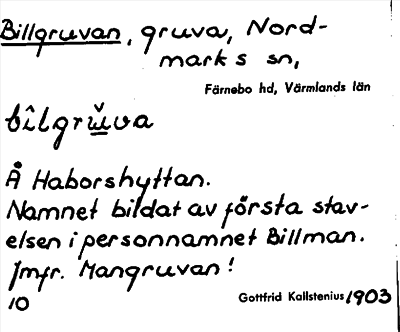 Billgruvan, gruva, Nord-
marks sn,
Färnebo hd, Värmlands län
bîlgrǔva
Å Haborshyttan.
Namnet bildat av första stav-
elsen i personnamnet Billman.
Jmfr. Mangruvan!
10 Gottfrid Kallstenius 1903